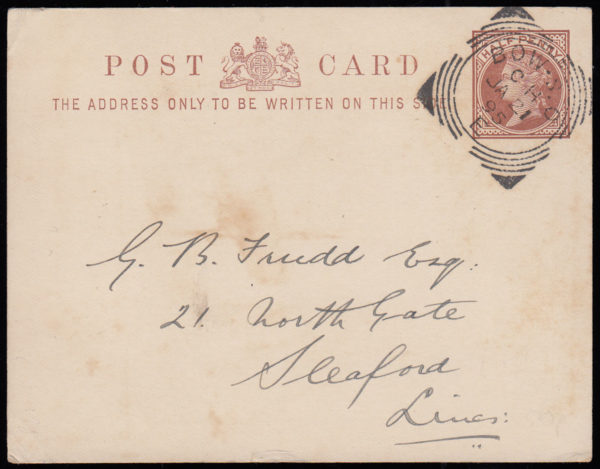 POST CARD
THE ADDRESS ONLY TO BE WRITTEN ON THIS SIDE
HALFPENNY
BOW. B.O
C
JA 21
95
E
G. B. Frudd Esq:
21. North Gate
Sleaford
Lincs: